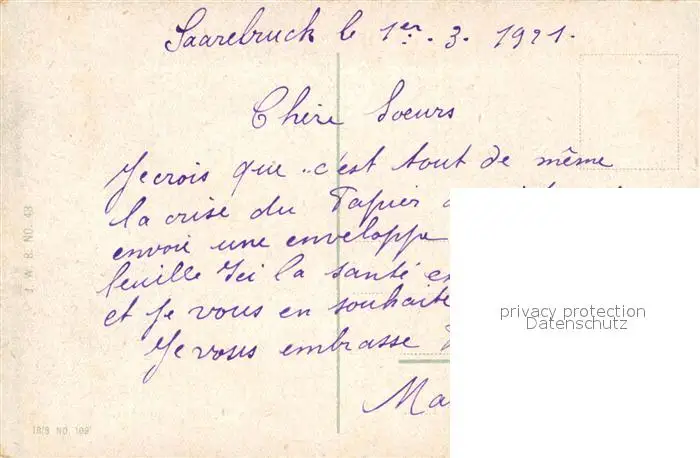 Saarebruck le 1er. 3. 1921.
Chère Soeurs
Je crois que c'est tout de même
la crise du Papier
envoie une enveloppe
feuille Ici la santé
et je vous en souhaite
Je vous embrasse
Ma
privacy protection
Datenschutz
J. W. B. NO. 43
ISIS NO. 109